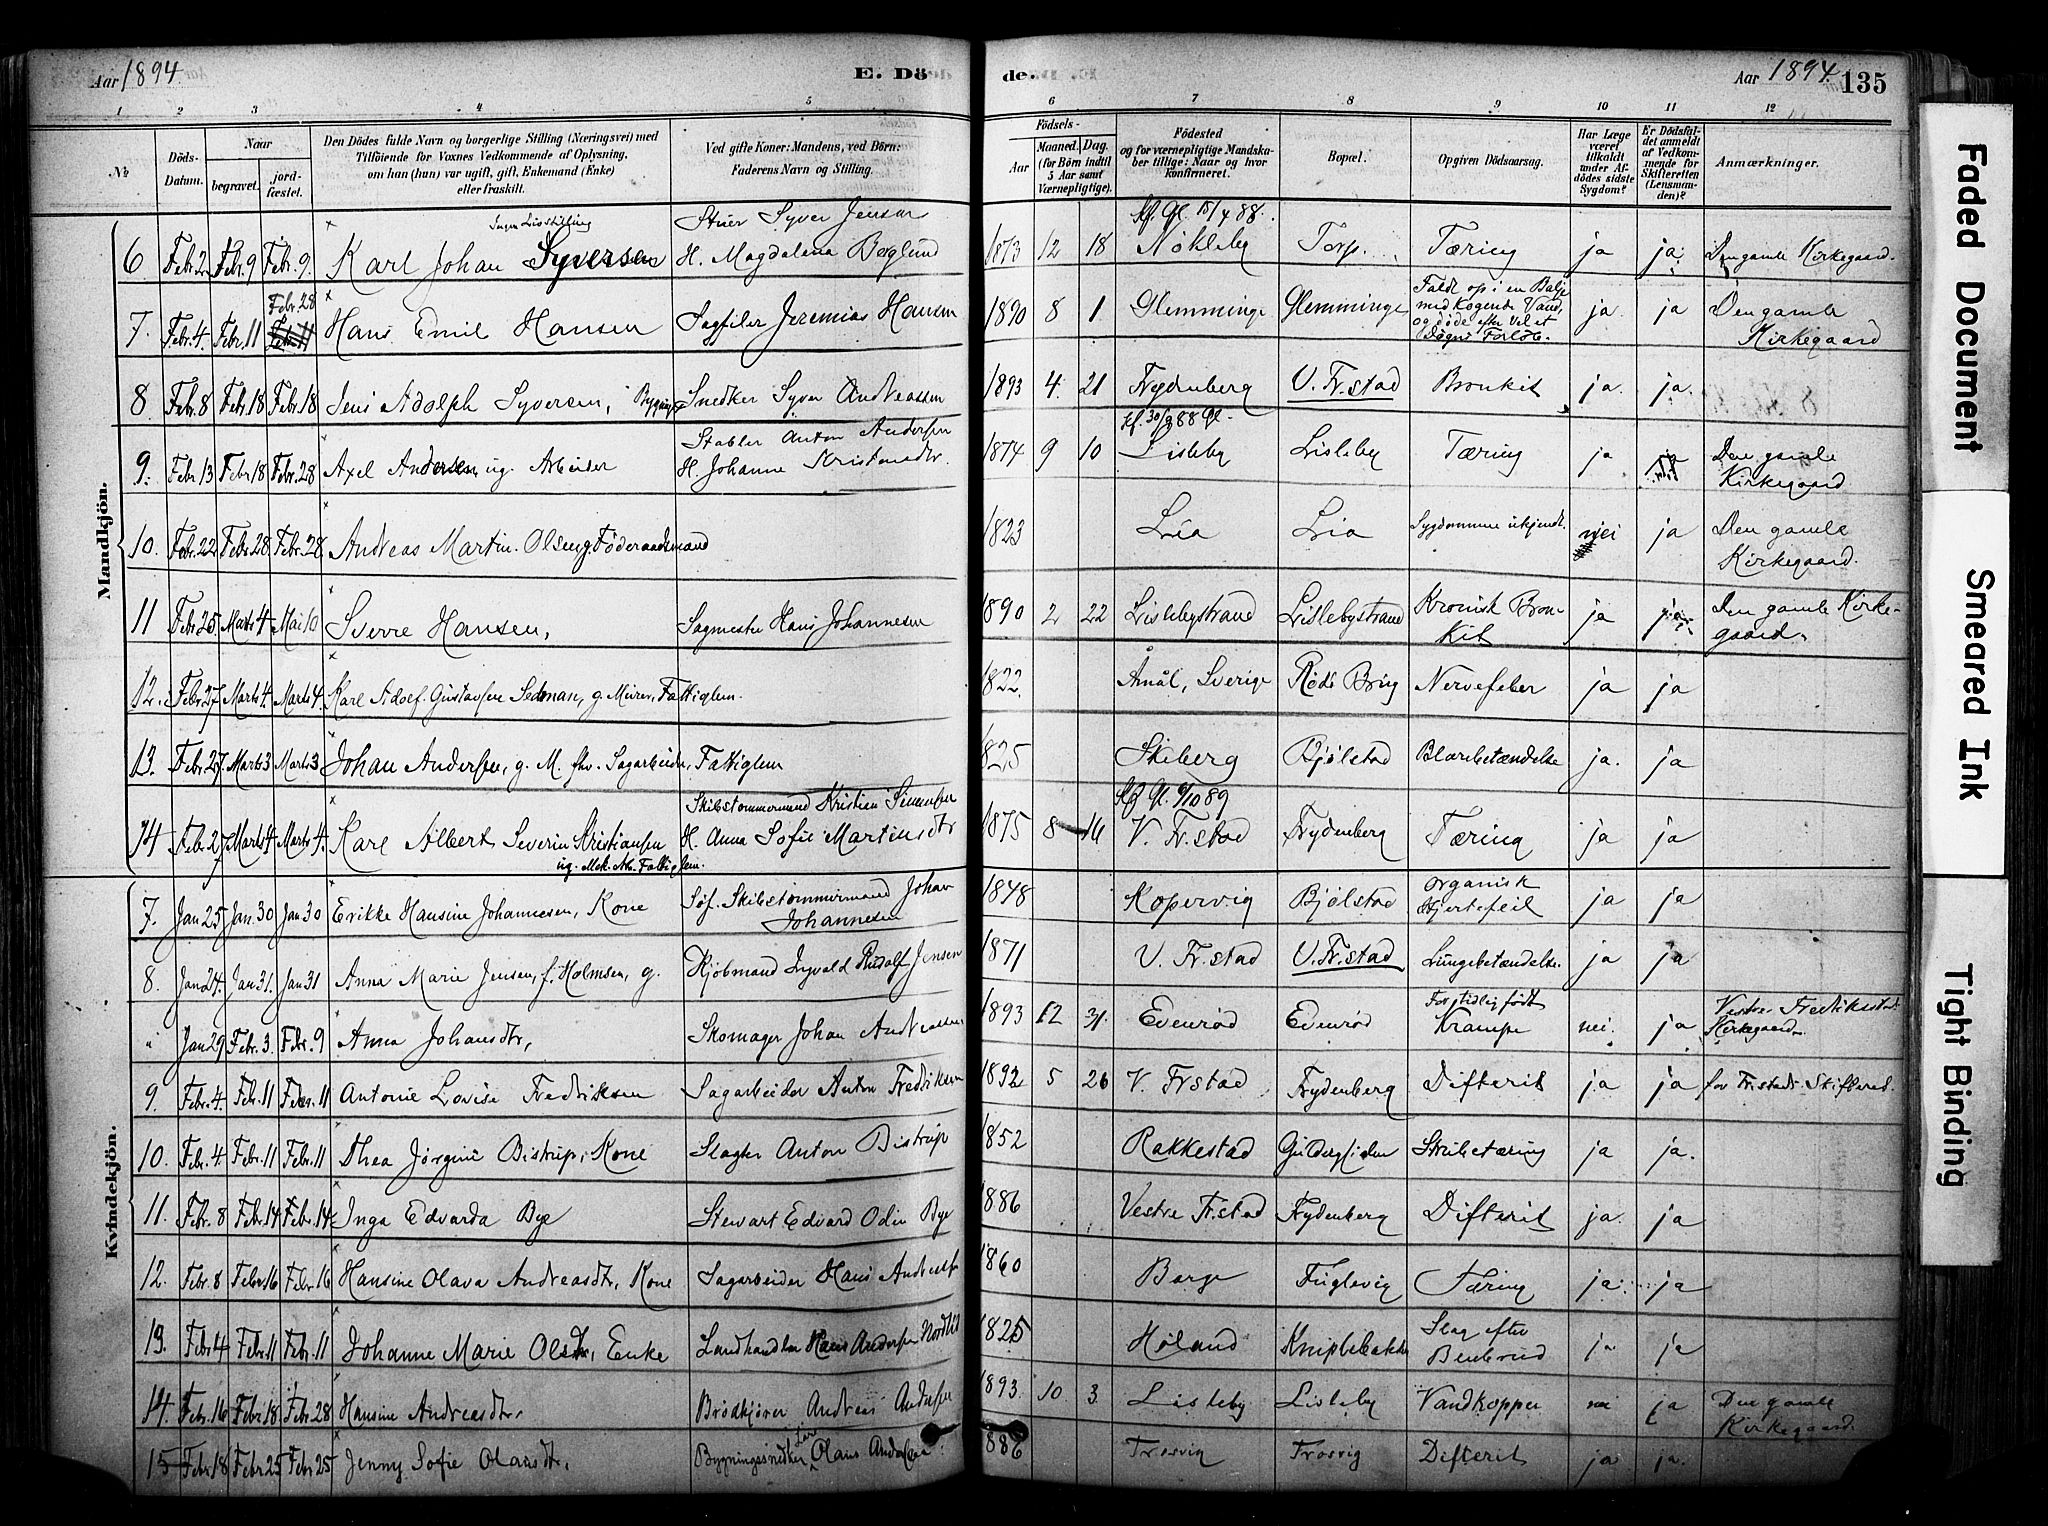 Aar 1894. E. Døde. Aar 1894. 135
1 2 3 4 5 6 7 8 9 10 11 12
№ Döds-Datum. Naar begravet. jordfæstet. Den Dödes fulde Navn og borgerlige Stilling (Næringsvei) med Tilföiende for Voxnes Vedkommende af Oplysning, om han (hun) var ugift, gift, Enkemand (Enke) eller fraskilt. Ved gifte Koner: Mandens, ved Börn: Faderens Navn og Stilling. Födsels- Aar Maaned. Dag. (for Börn indtil 5 Aar samt Værnepligtige). Födested og for værnepligtige Mandskaber tillige: Naar og hvor Konfirmeret. Bopæl. Opgiven Dödsaarsag. Har Læge været tilkaldt under Afdödes sidste Sygdom? Er Dödsfaldet anmeldt af Vedkommende for Skifteretten (Lensmanden)? Anmærkninger.
Mandkjön.
6 Febr. 2 Febr. 9 Febr. 9. Karl Johan Syversen Ingen Livsstilling Stuer Syver Jensen H. Magdalena Berglund 1873 12 18 Kf. Gl. 15/4 88. Nøkleby Torp. Tæring ja ja. Den gamle Kirkegaard.
7. Febr. 4. Febr. 11 Febr. 28 Hans Emil Hansen Sagfiler Jeremias Hansen 1890 8 1 Glemminge Glemminge Faldt op i en Balje med kogende Vand, og døde efter vel et Døgns Forløb. ja ja Den gamle Kirkegaard
8. Febr. 8 Febr. 18 Febr. 18 Jens Adolph Syversen, Bygnings Snedker Syver Andreassen 1893 4. 21 Frydenberg V. Fr.stad Bronkit ja. ja.
9. Febr. 13 Febr. 18 Febr. 28 Axel Andersen ug. Arbeider Stabler Anton Andersen H. Johanne Kristiansdtr. 1874 9 10 Kf. 30/9 88 Gl. Lisleby Lisleby Tæring ja Den gamle Kirkegaard
10. Febr. 22 Febr. 28 Febr. 28 Andreas Martin Olsen g. Føderaadsmand 1823 Lia Lia Sygdommen ukjendt. nei ja Den gamle Kirkegaard.
11 Febr. 25 Marts 4 Mai 10 Sverre Hansen, Sagmester Hans Johannesen 1890 2 22 Lislebystrand Lislebystrand Kronisk Bronkit ja ja Den gamle Kirkegaard.
12. Febr. 27 Marts 4. Marts 4. Karl Adolf Gustafsen Sedman, g. Murer, Fattiglem. 1822. Åmål, Sverige Røde Brug Nervefeber ja ja
13. Febr. 27 Marts 3 Marts 3 Johan Andersen, g. M. fhv. Sagarbeider, Fattiglem 1825 Skiberg Bjølstad Blærebetændelse ja. ja
14 Febr. 27 Marts 4 Marts 4. Karl Albert Severin Kristiansen ug. Mek. Arb. Fattiglem. Skibstømmermand Kristian Simensen H. Anna Sofie Martinsdtr 1875 8 16 Kf. Gl. 6/10 89 V. Fr.stad Frydenberg Tæring ja ja
Kvindekjön.
7. Jan 25 Jan. 30 Jan 30 Erikke Hansine Johannesen, Kone Søf. Skibstømmermand Johan Johannesen 1848 Kopervig Bjølstad organisk Hjertefeil ja ja
8. Jan 24. Jan 31. Jan 31 Anna Marie Jensen, f. Holmsen, g. Kjøbmand Ingvald Rudolf Jensen 1871 V. Fr.stad V. Fr.stad Lungebetændelse. ja ja
" Jan 29 Febr. 3. Febr. 9 Anna Johansdtr, Skomager Johan Andreassen 1893 12 31. Evenrød Evenrød For tidlig født Krampe nei. ja Vestre Fredriksstads Kirkegaard.
9. Febr. 4. Febr. 11 Febr. 11 Antonie Lovise Fredriksen Sagarbeider Anton Fredriksen 1892 5 26 V. Frstad Frydenberg Difterit ja ja for Fr.stads Skifteret.
10. Febr. 4. Febr. 11 Febr. 11 Thea Jørgine Bistrup, Kone Slagter Anton Bistrup 1852 Rakkestad Guldbergsiden Strubetæring ja ja.
11. Febr. 8 Febr. 14 Febr. 14 Inga Edvarda Bye Stewart Edvard Odin Bye 1886 Vestre Fr.stad Frydenberg Difterit ja. ja
12. Febr. 8 Febr. 16 Febr. 16 Hansine Olava Andreasdtr, Kone Sagarbeider Hans Andersen 1860 Borge Fuglevig Tæring ja ja
13. Febr. 4 Febr. 11 Febr. 11 Johanne Marie Olsdtr, Enke Landhandler Hans Andersen Nordlid 1825 Høland Kniplebakken Slag efter Benbrud ja ja
14. Febr. 16 Febr. 18 Febr. 28 Hansine Andreasdtr. Brødkjører Andreas Andersen 1893. 10 3 Lisleby Lisleby Vandkopper nei ja Den gamle Kirkegaard.
15 Febr. 18 Febr. 25 Febr. 25 Jenny Sofie Olausdtr. Bygningssnedker Lars Olaus Andersen 1886 Trosvig Trosvig Difterit ja ja.
Faded Document
Smeared Ink
Tight Binding